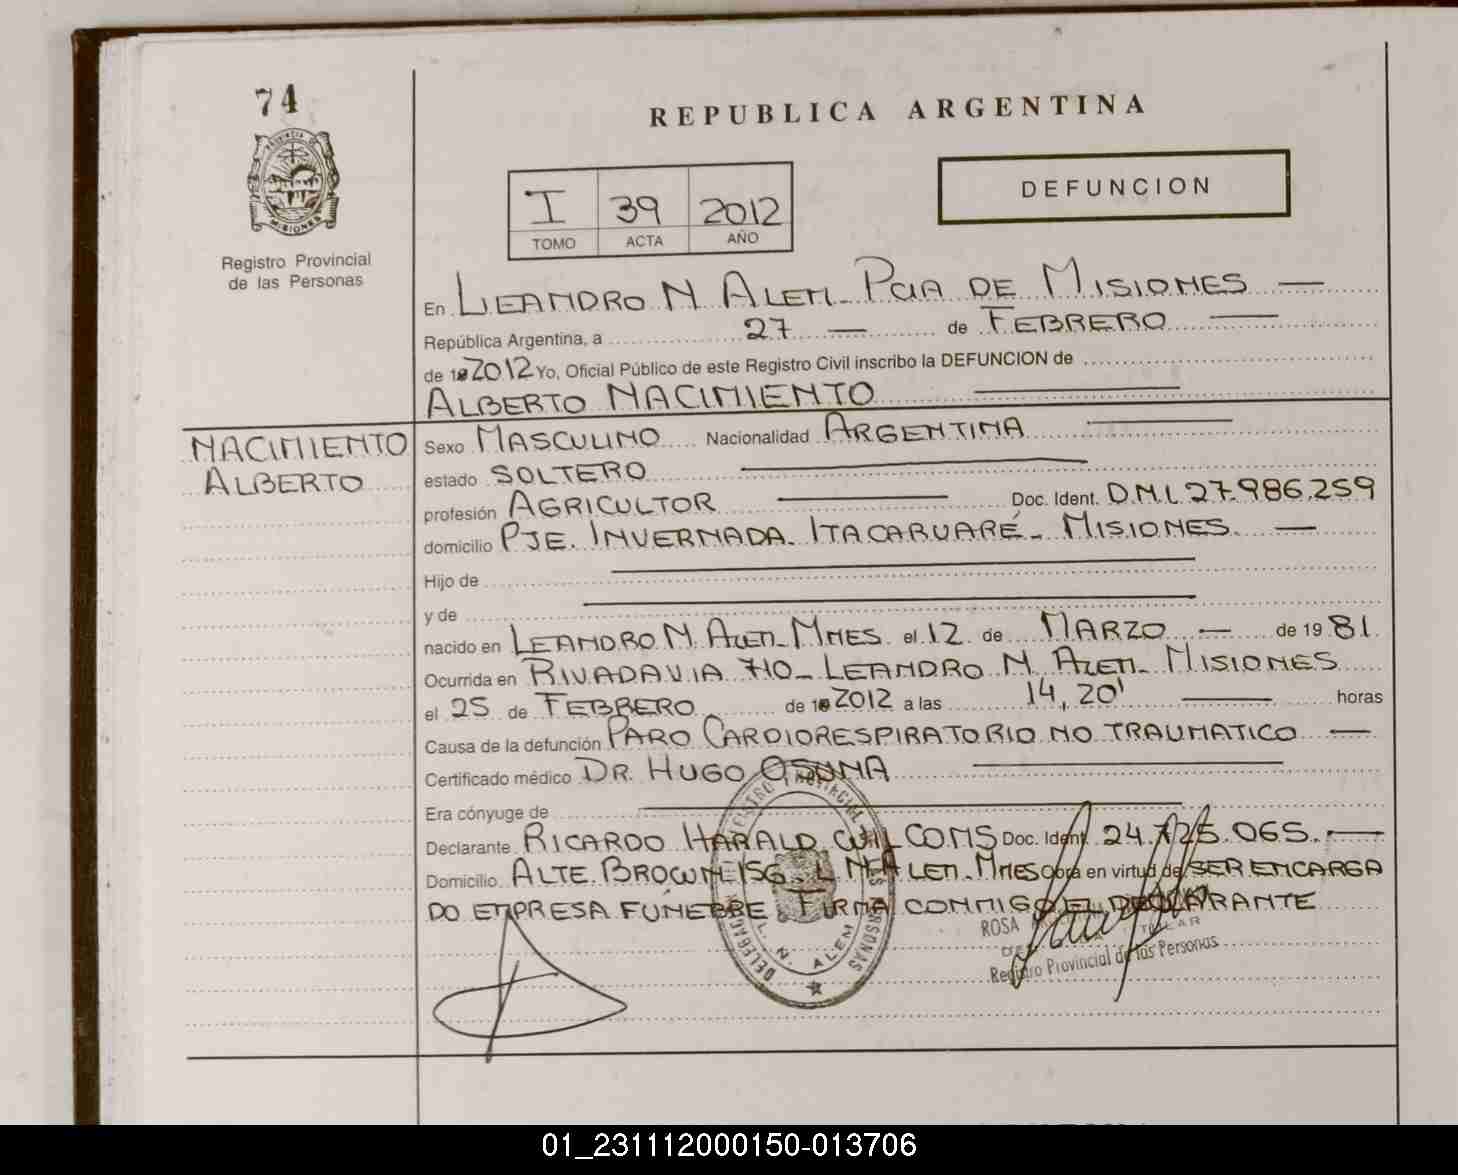 74
REPUBLICA ARGENTINA
PROVINCIA DE MISIONES
Registro Provincial
de las Personas
I 39 2012
TOMO ACTA AÑO
DEFUNCION
En LEANDRO N ALEM_ PCIA DE MISIONES —
República Argentina, a 27 — de FEBRERO —
de 2012 Yo, Oficial Público de este Registro Civil inscribo la DEFUNCION de
ALBERTO NACIMIENTO
NACIMIENTO
ALBERTO
Sexo MASCULINO Nacionalidad ARGENTINA
estado SOLTERO
profesión AGRICULTOR Doc. Ident. D.N.I. 27.986.259
domicilio PJE. INVERNADA. ITACARUARÉ_ MISIONES. —
Hijo de
y de
nacido en LEANDRO N. ALEM_ MNES. el 12 de MARZO — de 1981
Ocurrida en RIVADAVIA 710_ LEANDRO N. ALEM_ MISIONES
el 25 de FEBRERO de 2012 a las 14,20' horas
Causa de la defunción PARO CARDIORESPIRATORIO NO TRAUMATICO —
Certificado médico DR. HUGO OSUNA
Era cónyuge de
Declarante RICARDO HARALD Doc. Ident. 24.725.065. —
Domicilio ALTE. BROWN L. N. ALEM_ MNES Obra en virtud de SER ENCARGA
DO EMPRESA FÚNEBRE FIRMA CONMIGO EL DECLARANTE
REGISTRO PROVINCIAL DE LAS PERSONAS
DELEGACION
L. N. ALEM
ROSA
TITULAR
Registro Provincial de las Personas
01_231112000150-013706